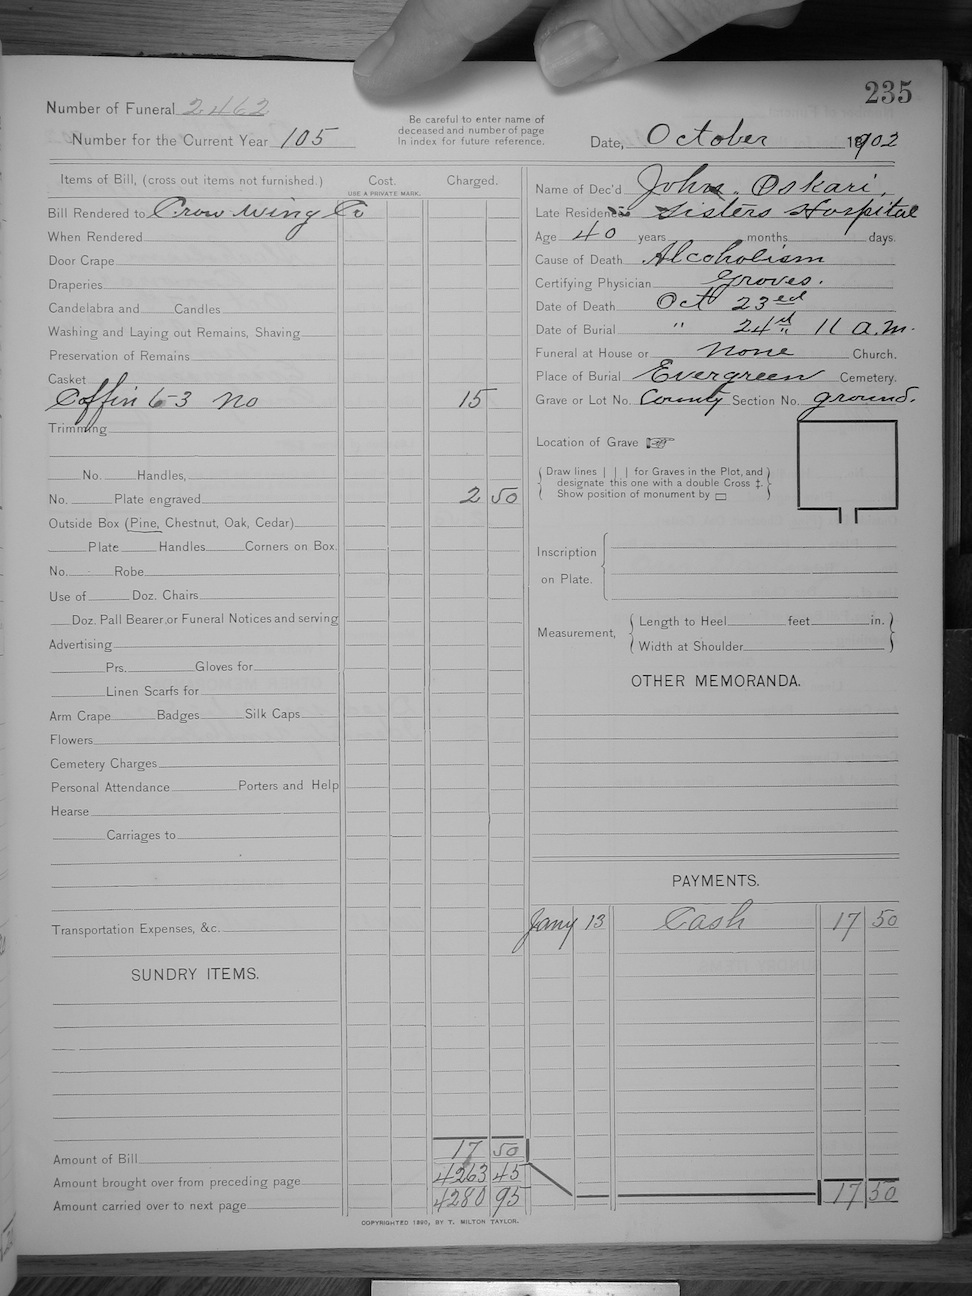 235
Number of Funeral 2462
Number for the Current Year 105
Be careful to enter name of
deceased and number of page
in index for future reference.
Date, October 1902
Items of Bill, (cross out items not furnished.) Cost. Charged.
USE A PRIVATE MARK.
Bill Rendered to Crow Wing Co
When Rendered
Door Crape
Draperies
Candelabra and Candles
Washing and Laying out Remains, Shaving
Preservation of Remains
Casket
Coffin 6-3 No 15
Trimming
No. Handles,
No. Plate engraved 2 50
Outside Box (Pine, Chestnut, Oak, Cedar)
Plate Handles Corners on Box.
No. Robe
Use of Doz. Chairs
Doz. Pall Bearer, or Funeral Notices and serving
Advertising
Prs. Gloves for
Linen Scarfs for
Arm Crape Badges Silk Caps
Flowers
Cemetery Charges
Personal Attendance Porters and Help
Hearse
Carriages to
Transportation Expenses, &c.
SUNDRY ITEMS.
Amount of Bill 17 50
Amount brought over from preceding page 4263 45
Amount carried over to next page 4280 95
Name of Dec'd John Oskari.
Late Residence Sisters Hospital
Age 40 years months days.
Cause of Death Alcoholism
Certifying Physician Groves.
Date of Death Oct 23ed
Date of Burial " 24d 11 a.m.
Funeral at House or None Church.
Place of Burial Evergreen Cemetery.
Grave or Lot No. County Section No. ground.
Location of Grave ☞
Draw lines | | | for Graves in the Plot, and
designate this one with a double Cross ‡.
Show position of monument by ▭
Inscription
on Plate.
Measurement, Length to Heel feet in.
Width at Shoulder
OTHER MEMORANDA.
PAYMENTS.
Jany 13 Cash 17 50
17 50
COPYRIGHTED 1890, BY T. MILTON TAYLOR.